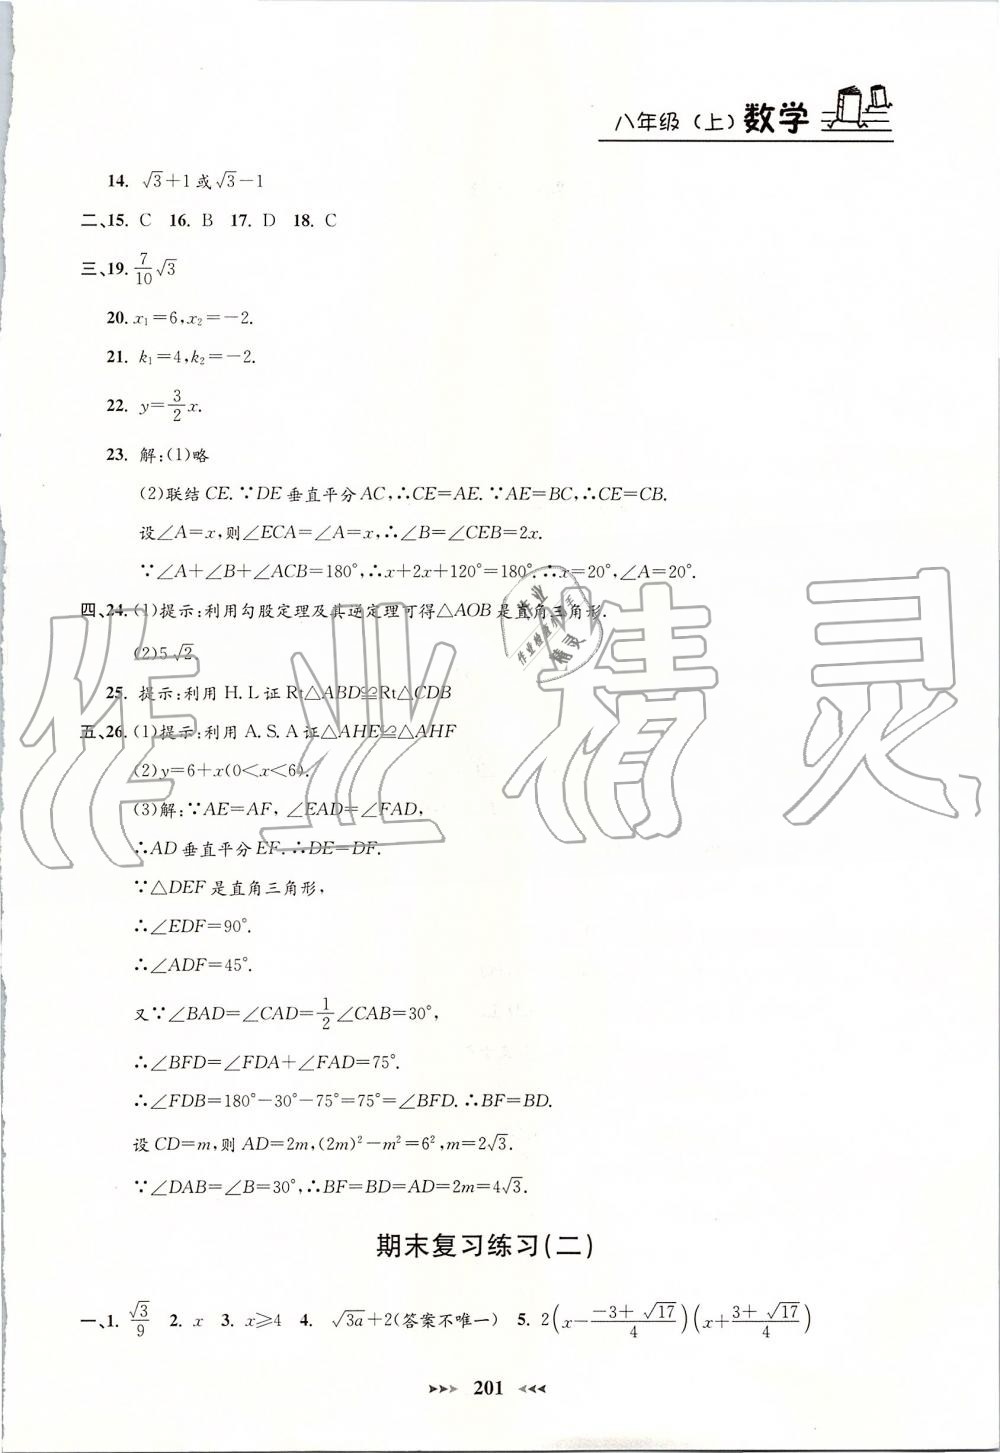 八年级（上）数学
14. √3+1或√3-1
二、15. C 16. B 17. D 18. C
三、19. 7/10 √3
20. x₁=6,x₂=-2.
21. k₁=4,k₂=-2.
22. y=3/2 x.
23. 解:(1)略
(2)联结CE.∵DE垂直平分AC,∴CE=AE.∵AE=BC,∴CE=CB.
设∠A=x,则∠ECA=∠A=x,∴∠B=∠CEB=2x.
∵∠A+∠B+∠ACB=180°,∴x+2x+120°=180°.∴x=20°,∠A=20°.
四、24. (1)提示:利用勾股定理及其逆定理可得△AOB是直角三角形.
(2)5√2
25. 提示:利用H.L证Rt△ABD≌Rt△CDB
五、26. (1)提示:利用A.S.A证△AHE≌△AHF
(2)y=6+x(0<x<6).
(3)解:∵AE=AF,∠EAD=∠FAD,
∴AD垂直平分EF.∴DE=DF.
∵△DEF是直角三角形,
∴∠EDF=90°.
∴∠ADF=45°.
又∵∠BAD=∠CAD=1/2∠CAB=30°,
∴∠BFD=∠FDA+∠FAD=75°.
∴∠FDB=180°-30°-75°=75°=∠BFD.∴BF=BD.
设CD=m,则AD=2m,(2m)²-m²=6²,m=2√3.
∵∠DAB=∠B=30°,∴BF=BD=AD=2m=4√3.
期末复习练习(二)
一、1. √3/9 2. x 3. x≥4 4. √3a+2(答案不唯一) 5. 2(x-(-3+√17)/4)(x+(3+√17)/4)
201
作业精灵